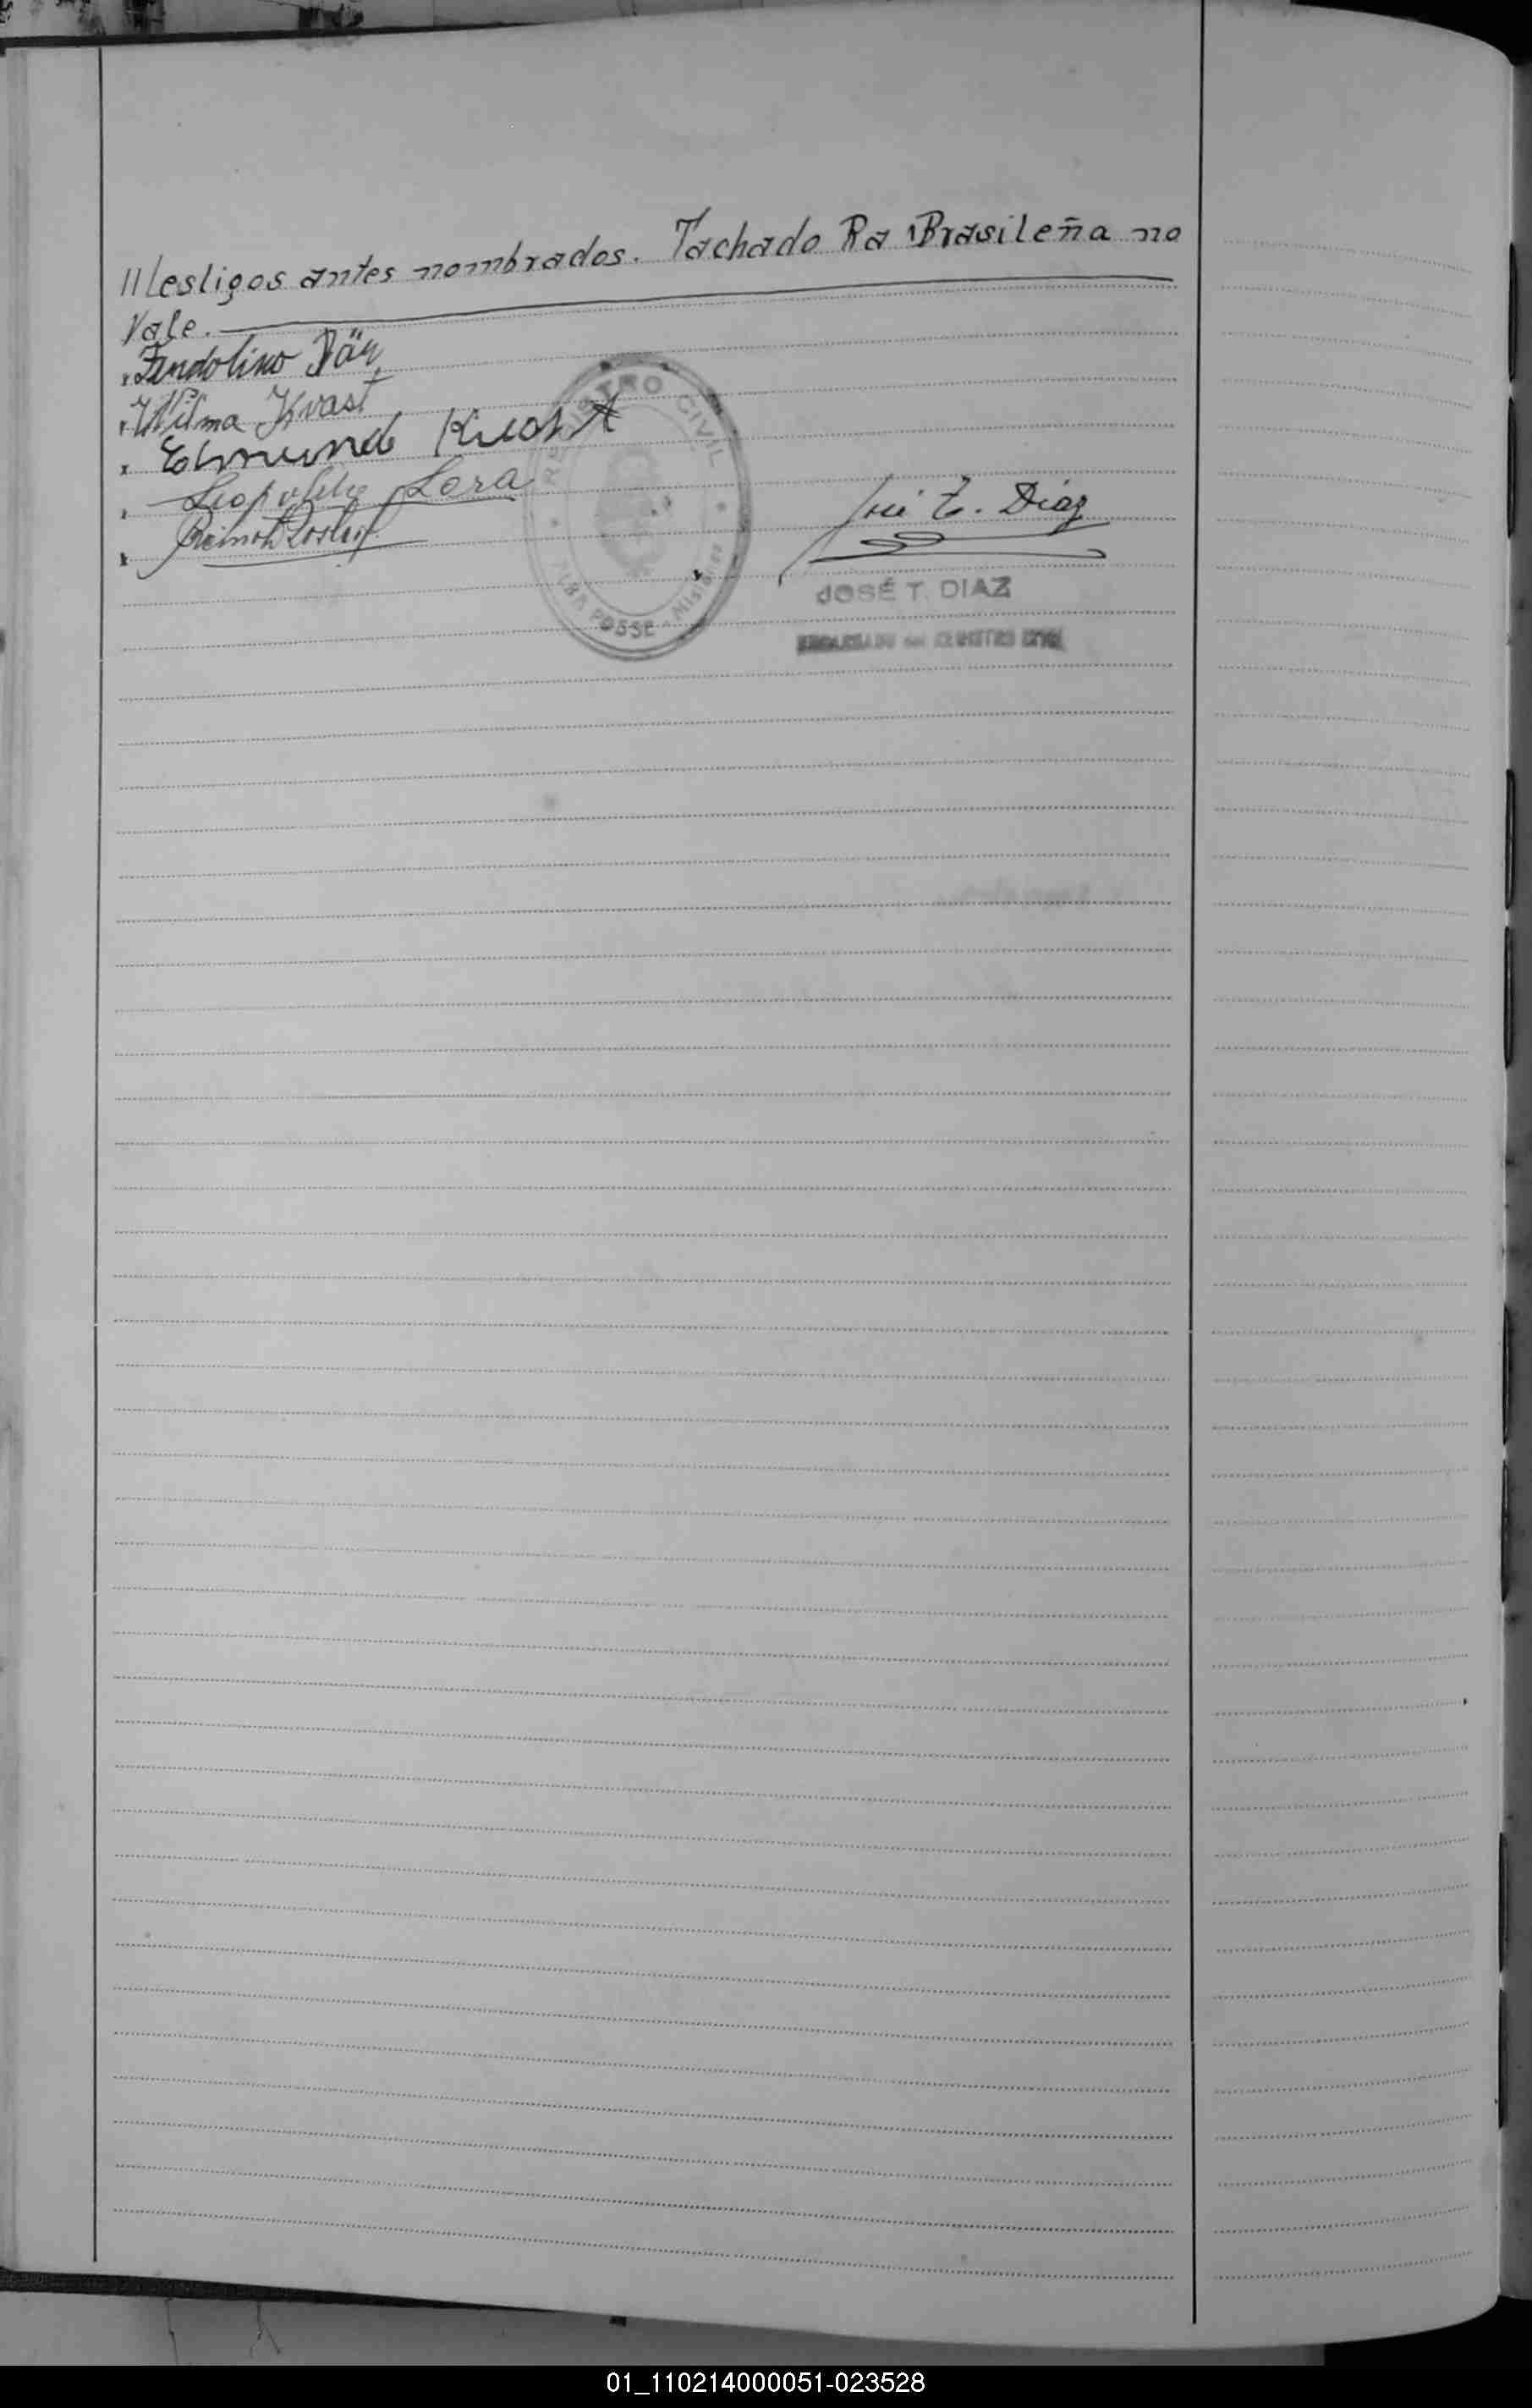 //testigos antes nombrados. Tachado Ra Brasileña no
Vale.
Wilma Kvast
Edmund
Leopoldo Lora
José T. Díaz
REGISTRO CIVIL
ALBA POSSE - Misiones
JOSÉ T. DIAZ
ENCARGADO del REGISTRO CIVIL
01_110214000051-023528